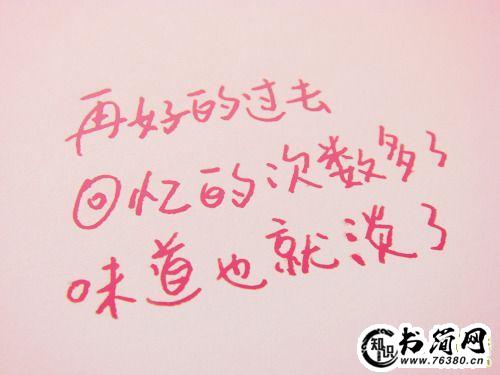 再好的过去
回忆的次数多了
味道也就淡了
知识
书简网
www.76380.cn